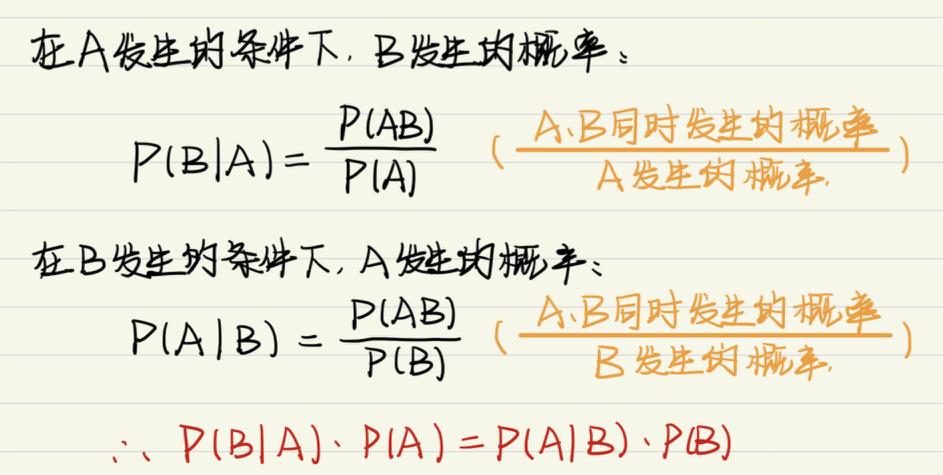 在A发生的条件下，B发生的概率：
P(B|A) = P(AB)/P(A) （A、B同时发生的概率/A发生的概率）
在B发生的条件下，A发生的概率：
P(A|B) = P(AB)/P(B) （A、B同时发生的概率/B发生的概率）
∴ P(B|A)·P(A) = P(A|B)·P(B)